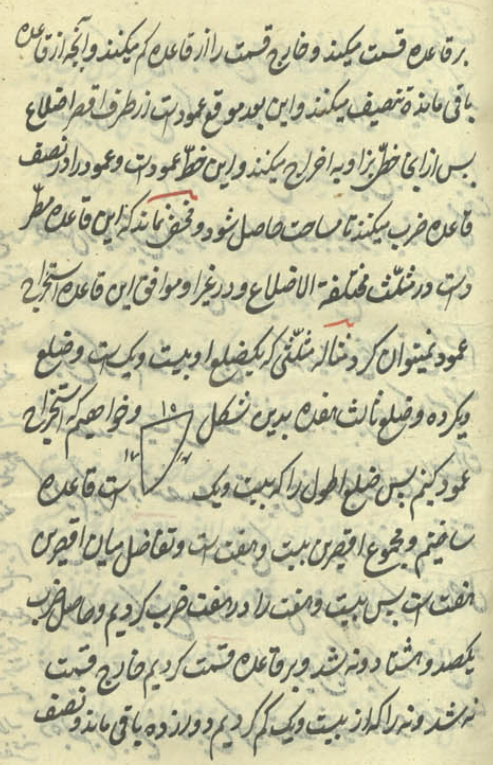 بر قاعده قسمت میکنند و خارج قسمت را از قاعده کم میکنند و آنچه از قاعده
باقی مانده تنصیف میکنند و این بعد موقع عمودست از طرف اقصر اضلاع
پس از اینجا خطی بزاویه اخراج میکنند و این خط عمودست و عمود را در نصف
قاعده ضرب میکنند تا مساحت حاصل شود و مخفی نماند که این قاعده مطّر
دست در مثلّث مختلفة الاضلاع و در غیر او موافق این قاعده استخراج
عمود نمیتوان کرد مثاله مثلّثی که یکضلع او بیست و یکست و ضلع
دیگر ده و ضلع ثالث هفده بدین شکل ١٥ و خواهیم که استخراج
عمود کنیم پس ضلع اطول را که بیست و یک ١٧ ست قاعده
ساختیم و مجموع اقصرین بیست و هفت است و تفاضل میان اقصرین
هفت است پس بیست و هفت را در هفت ضرب کردیم و حاصل ضرب
یکصد و هشتاد و نه شد و بر قاعده قسمت کردیم خارج قسمت
نه شد و نه را که از بیست و یک کم کردیم دوازده باقی ماند و نصف